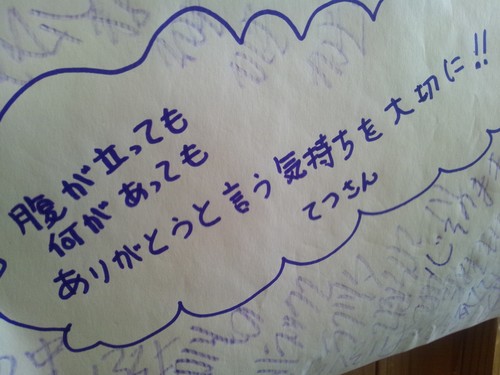 腹が立っても
何があっても
ありがとうと言う気持ちを大切に!!
てつさん